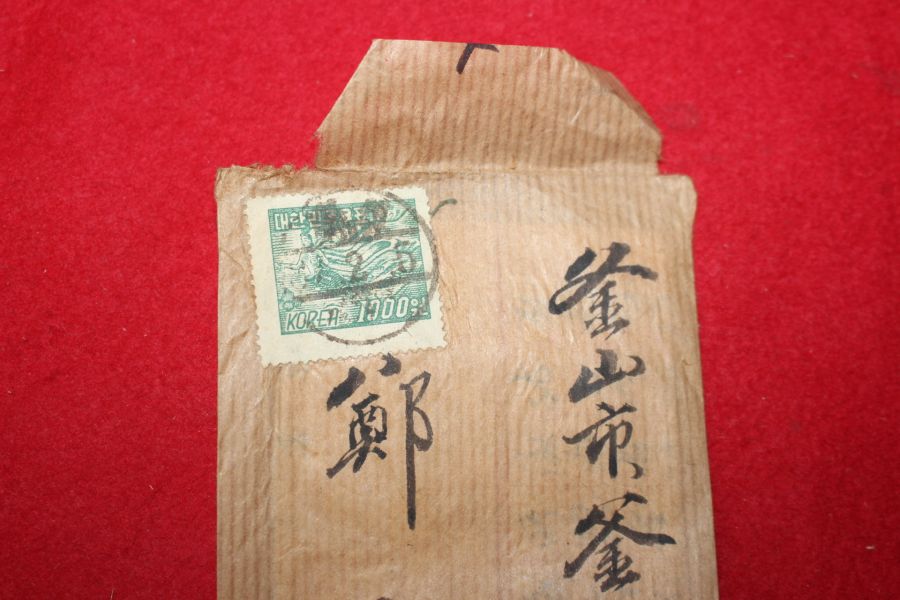 대한민국우표
2 5
KOREA 1000원
釜山市釜
鄭